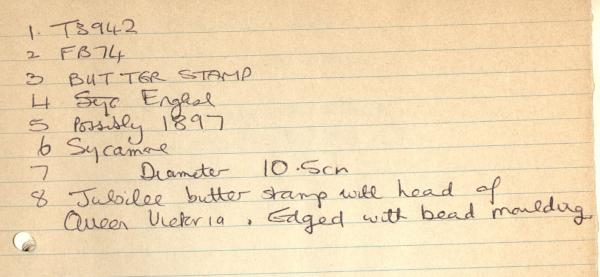 1. TB942
2 FB74
3 BUTTER STAMP
4 Syc English
5 Possibly 1897
6 Sycamore
7 Diameter 10.5cm
8 Jubilee butter stamp with head of
Queen Victoria. Edged with bead moulding